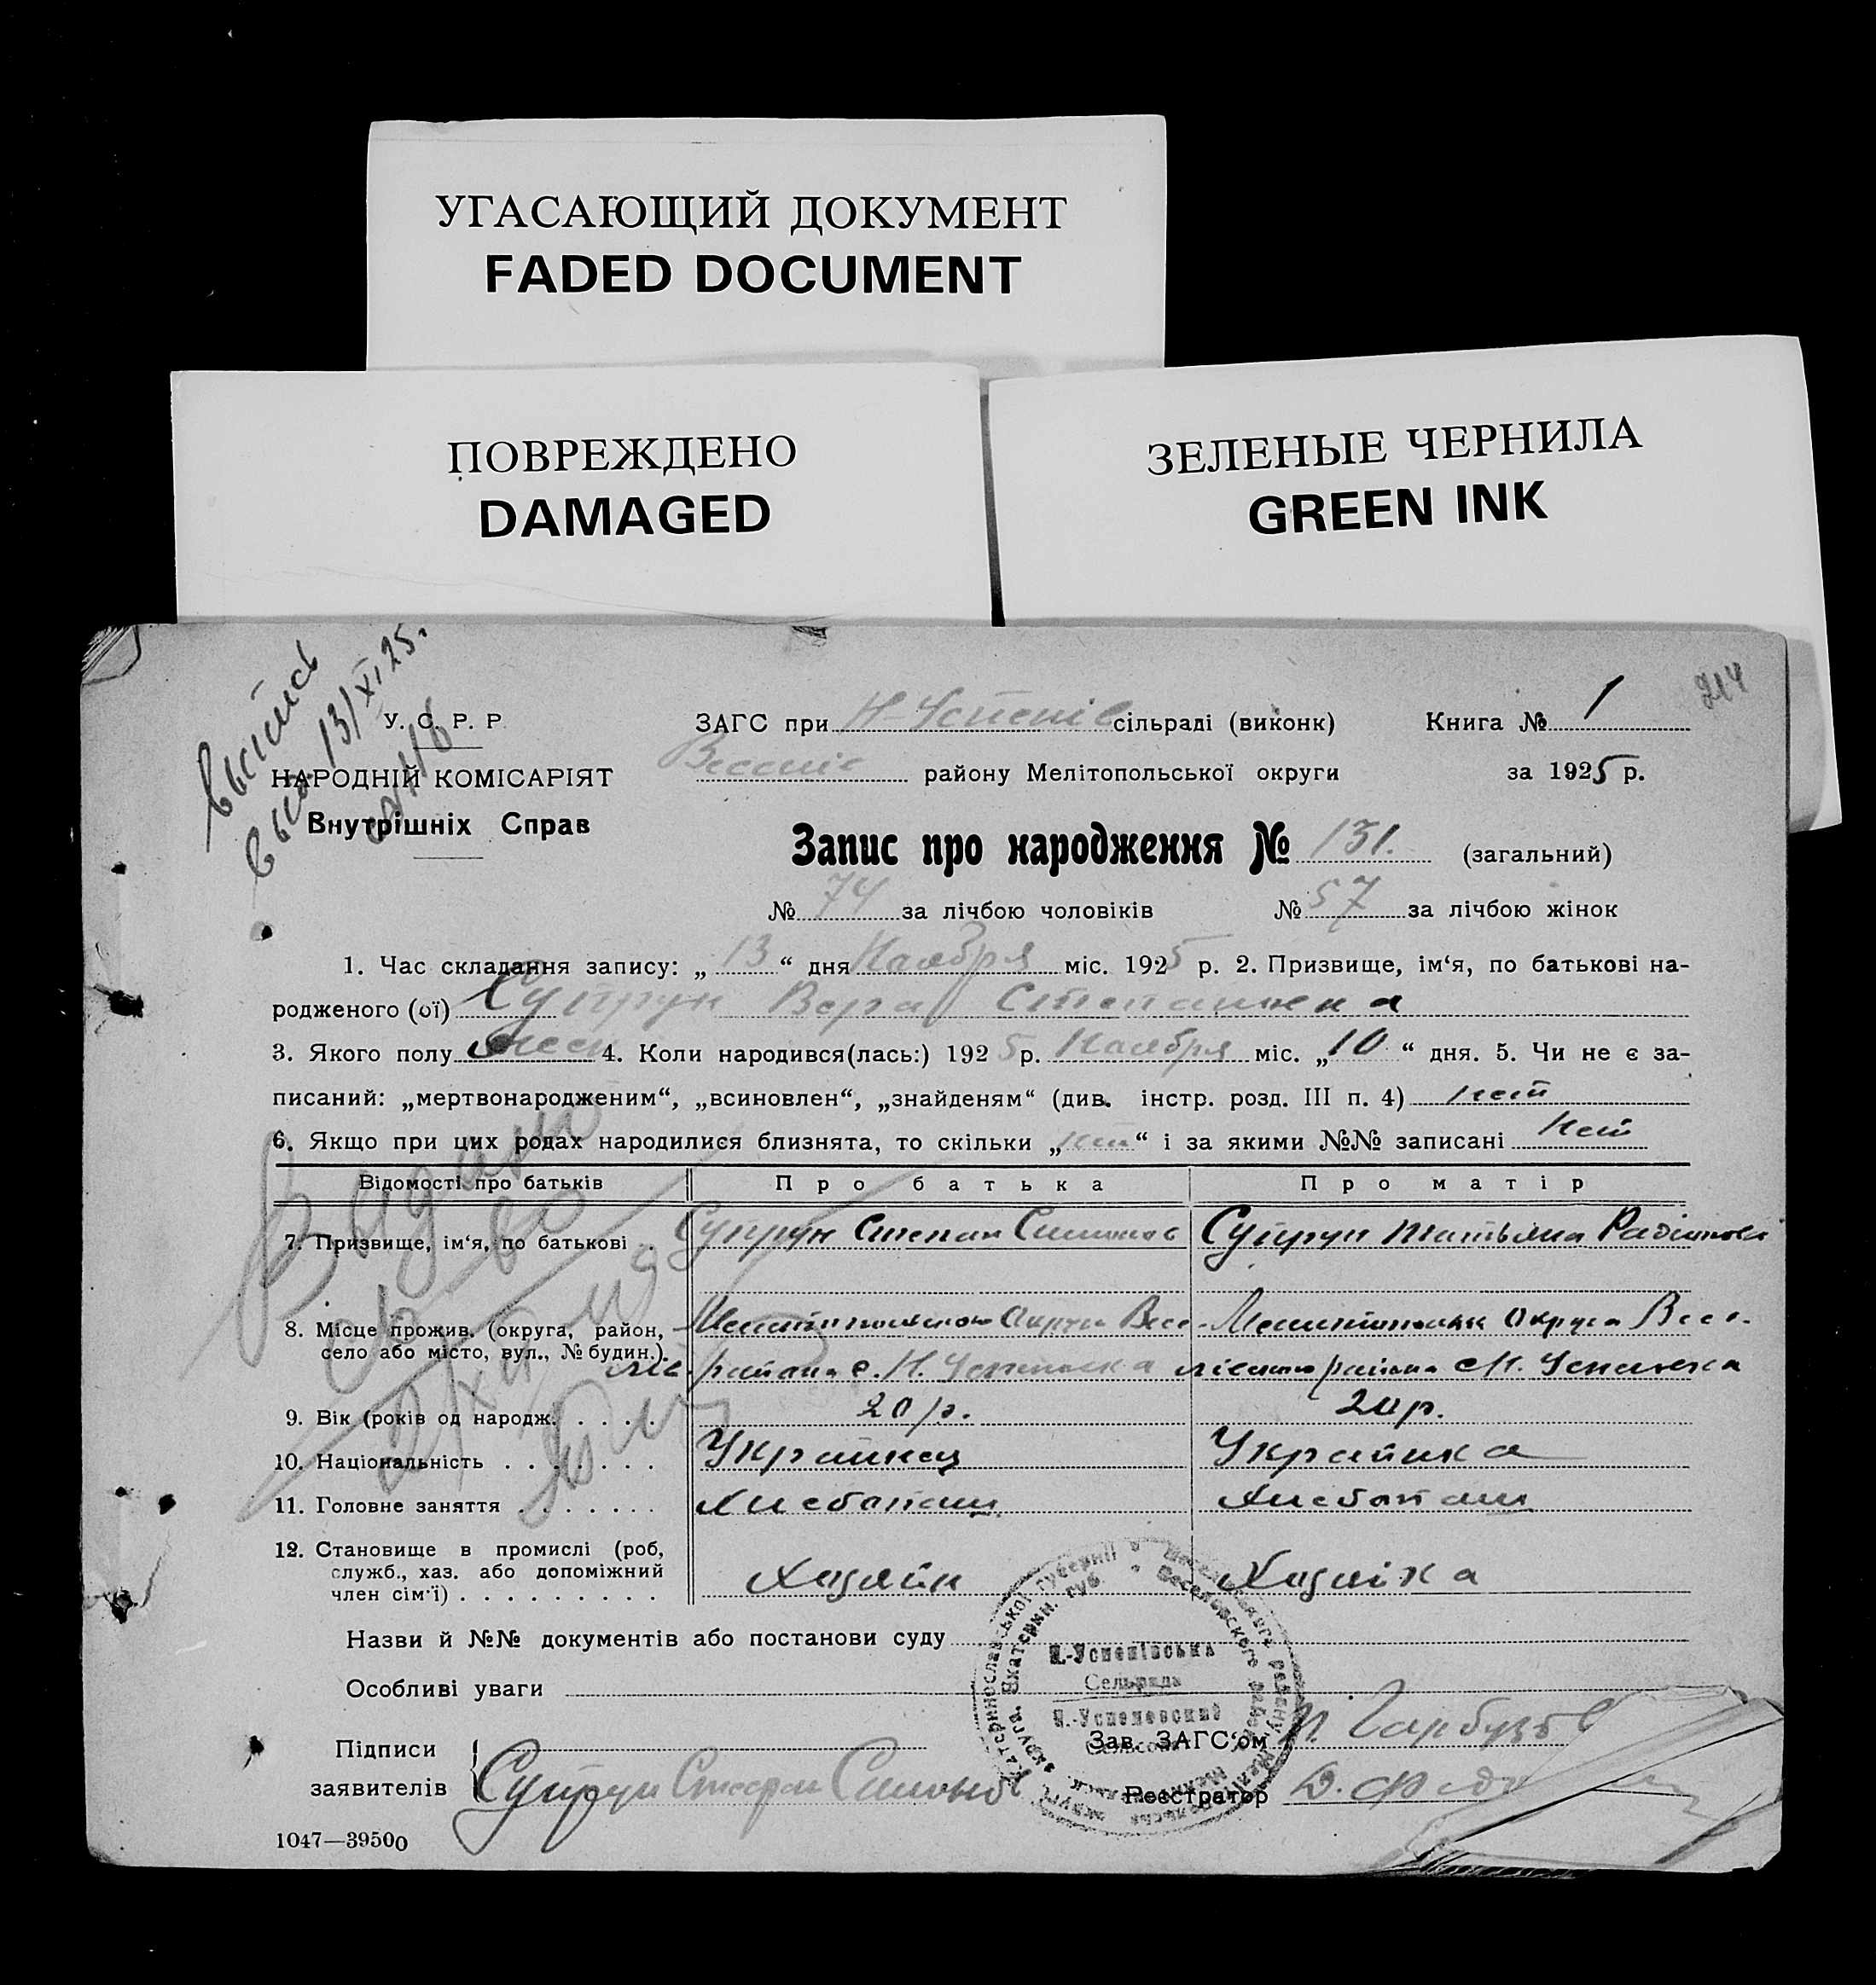 УГАСАЮЩИЙ ДОКУМЕНТ
FADED DOCUMENT
ПОВРЕЖДЕНО
DAMAGED
ЗЕЛЕНЫЕ ЧЕРНИЛА
GREEN INK
214
13/XI 25.
У. С. Р. Р
НАРОДНІЙ КОМІСАРІЯТ
Внутрішніх Справ
ЗАГС при Н-Успенів сільраді (виконк) Книга № 1
району Мелітопольської округи за 1925 р.
Запис про народження № 131. (загальний)
№ 74 за лічбою чоловіків № 57 за лічбою жінок
1. Час складання запису: „ 13 “ дня Ноября міс. 1925 р. 2. Призвище, ім‘я, по батькові на-
родженого (ої) Супрун Вера Степановна
3. Якого полу жен 4. Коли народився(лась:) 1925 р. Ноября міс. „10“ дня. 5. Чи не є за-
писаний: „мертвонародженим“, „всиновлен“, „знайденям“ (див. інстр. розд. III п. 4) нет
6. Якщо при цих родах народилися близнята, то скільки „нет“ і за якими №№ записані нет
Відомості про батьків Про батька Про матір
7. Призвище, ім‘я, по батькові Супрун Степан Симонов Супрун Татьяна Радіонова
8. Місце прожив. (округа, район, село або місто, вул., № будин.) округи Весе- Округа Весе-
района с. Н. Успеновка района с Н. Успеновка
9. Вік (років од народж. . . . . 20 р. 20 р.
10. Національність . . . . . . . Украинец Украинка
11. Головне заняття . . . . . . . Хлебопаш. Хлебопаш
12. Становище в промислі (роб, служб., хаз. або допоміжний член сім‘ї) . . . . . . . . . Хазяин Хазяіка
Назви й №№ документів або постанови суду
Особливі уваги
Н.-Успенівська
Сельрада
Н.-Успеновский
Сельсовет
Підписи
заявителів Супрун Стефан Симонов
Зав. ЗАГС‘ом П. Гарбузов
Реєстратор
1047—39500